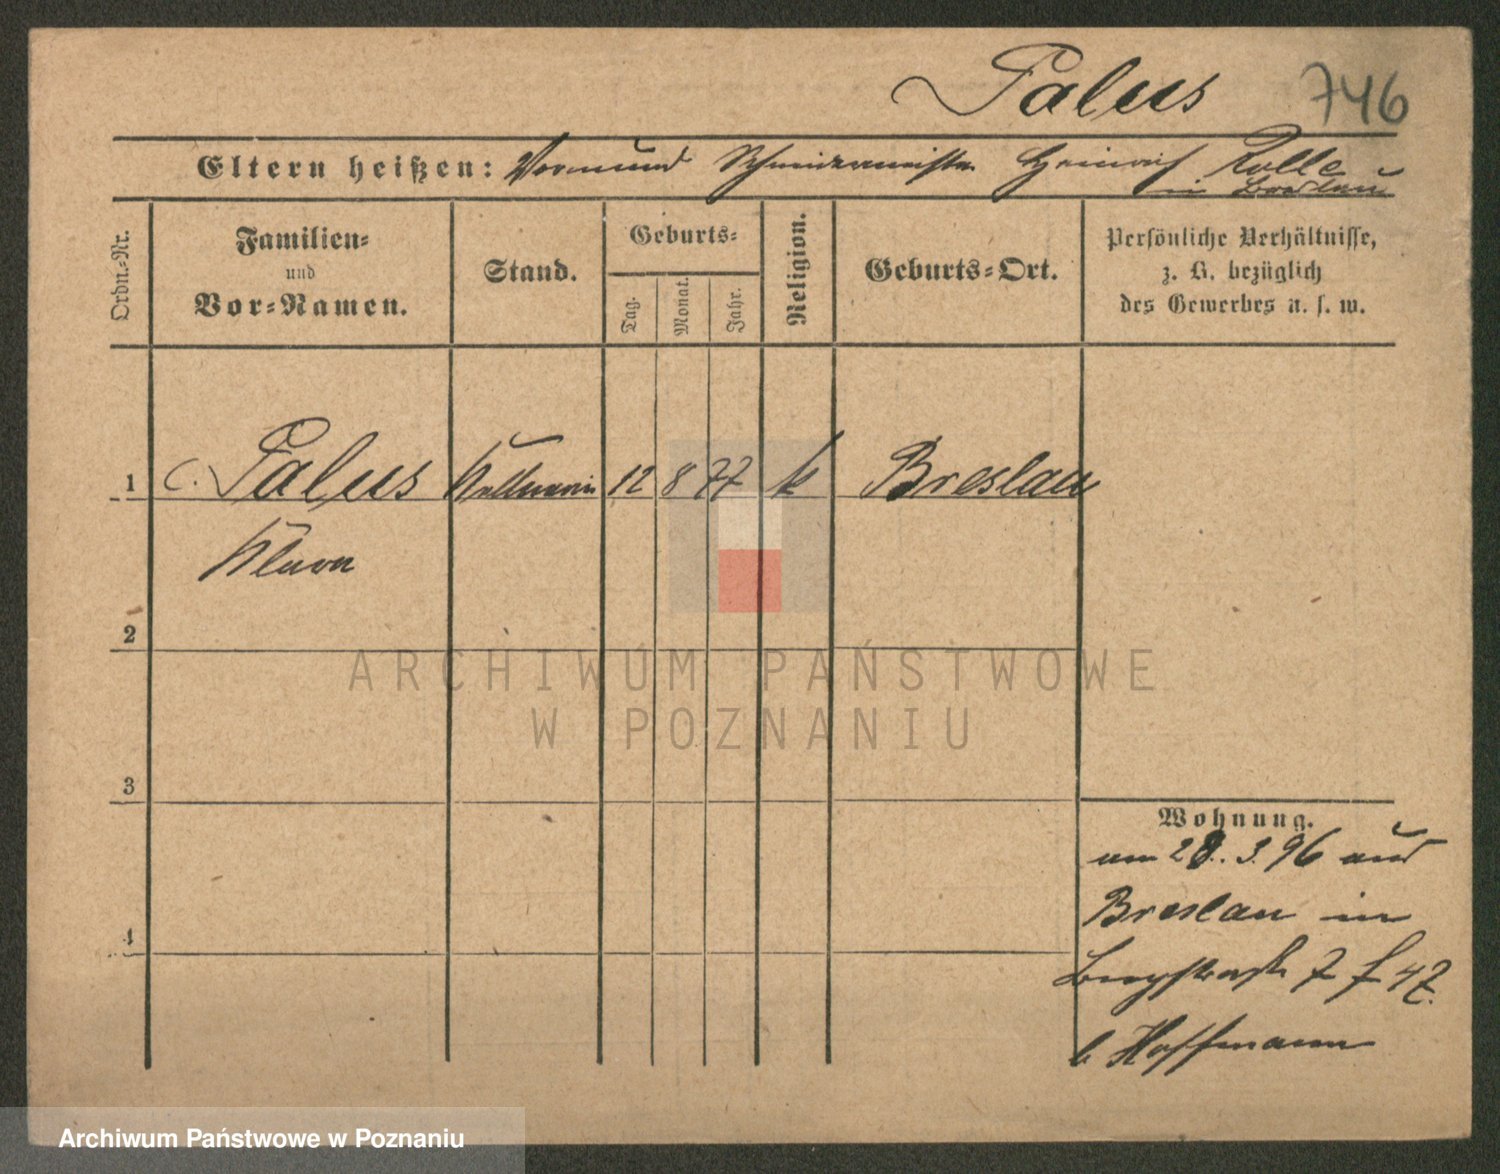 Palus 746
Eltern heißen: Vormund Schneidermeister Heinrich Rolle
in Breslau
Ordn.-Nr.
Familien-
und
Vor-Namen.
Stand.
Geburts-
Tag.
Monat.
Jahr.
Religion.
Geburts-Ort.
Persönliche Verhältnisse,
z. B. bezüglich
des Gewerbes u. s. w.
1 C. Palus 12 8 77 k Breslau
Klara
2
3
4
Wohnung.
am 28. 3. 96 aus
Breslau in
Bergstraße 7
b Hoffmann
ARCHIWUM PAŃSTWOWE
W POZNANIU
Archiwum Państwowe w Poznaniu